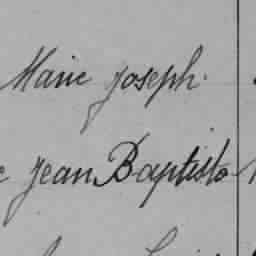 Marie Joseph.
Jean Baptiste